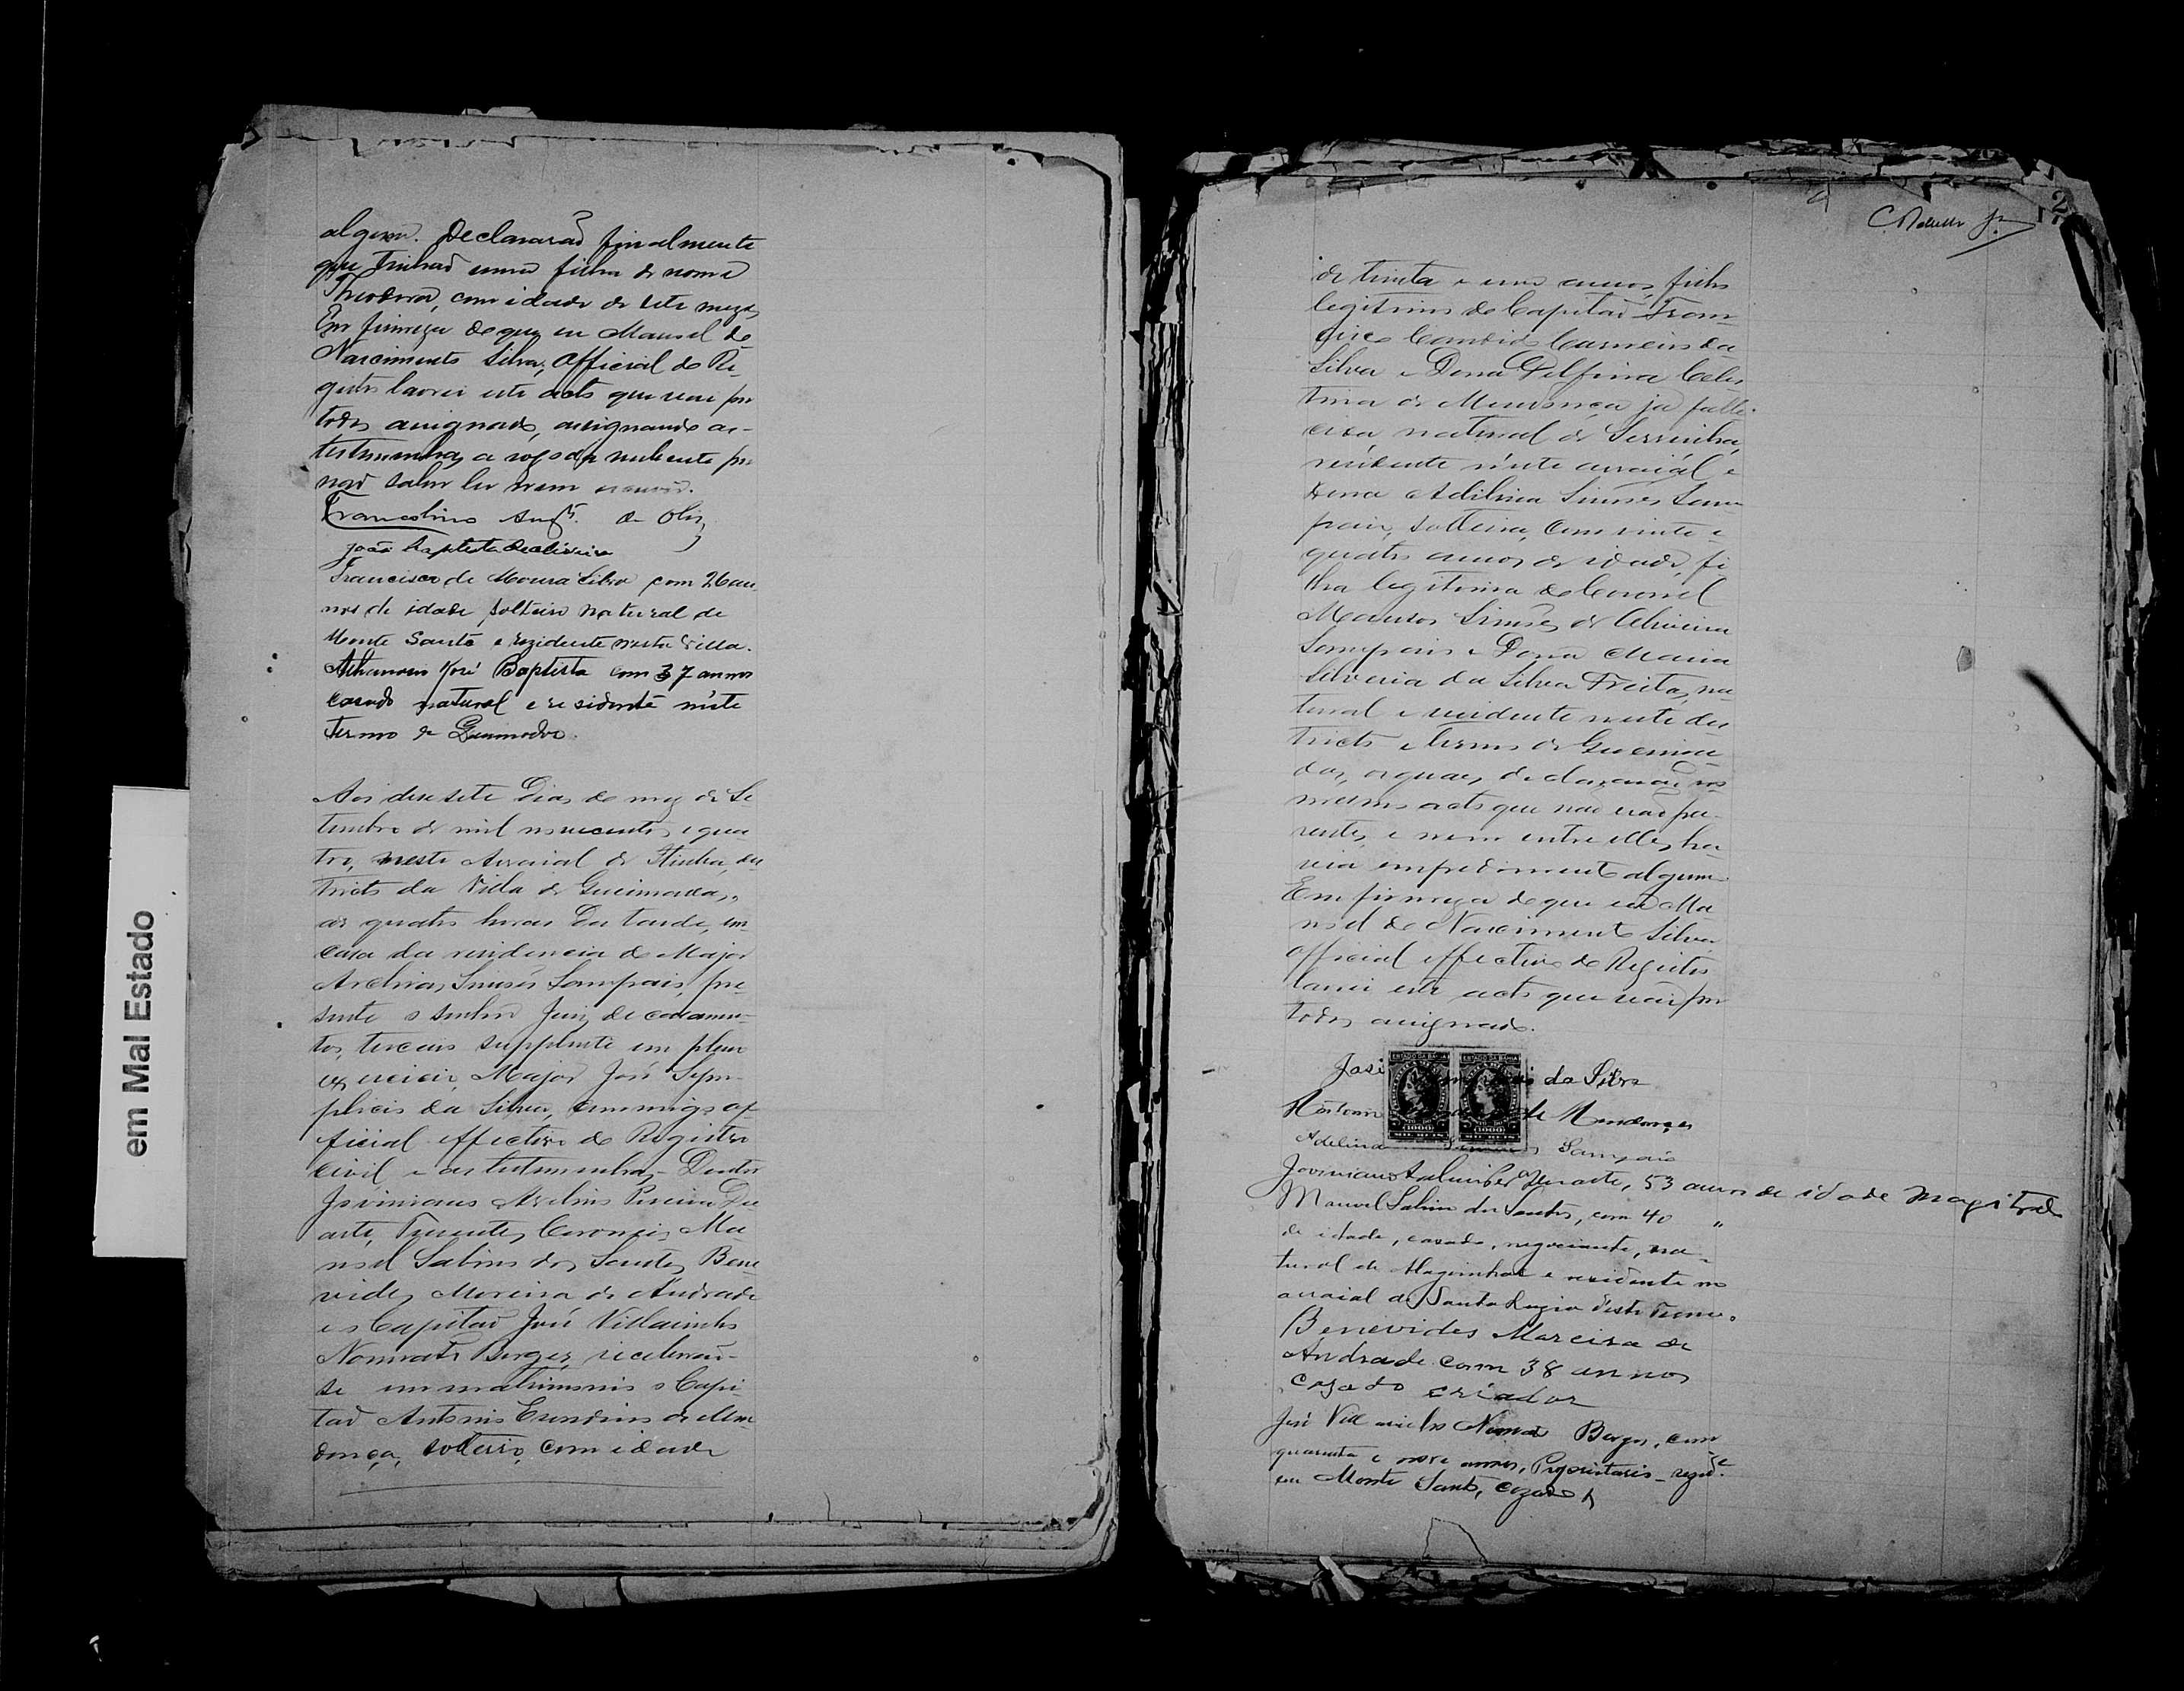 algum. Declararão finalmente
que tinhão uma filha de nome
Theodora, com idade de sete mezes
Em firmeza do que eu Manoel do
Nascimento Silva, Official do Re
gistro lavrei este acto que vae por
todos assignado, assignando as
testemunhas a rogo da nubente por
não saber ler nem escrever.
Francolino Augto. de Olivª
João Baptista de Oliveira
Francisco de Moura Silva com 26 an
nos de idade solteiro natural de
Monte Santo e rezidente nesta Villa.
José Baptista com 37 annos
casado natural e residente neste
termo de Queimados.
Aos desesete dias do mez de Se
tembro de mil novecentos e qua
tro, neste Arraial de Itiuba, dis
tricto da Villa de Queimadas,
as quatro horas da tarde, em
casa da residencia do Major
Simões Sampaio, pre
sente o senhor Juiz de casamen
tos, terceiro supplente em pleno
exercicio Major José Sym
plicio da Silva, commigo of
ficial effectivo do Registro
civil e as testemunhas, Doutor
Joviniano Pereira Du
arte, Tenentes Coroneis Ma
noel Sabino dos Santos, Bene
vides Moreira de Andrade
e o Capitão José
Nonnato Borges, receberão-
se em matrimonio o Capi
tão Antonio de Men
donça, solteiro, com idade
2
de trinta e um annos, filho
legitimo do Capitão Fran
cisco Candido Carneiro da
Silva e Dona Delfina Celes
tina de Mendonça ja falle
cida natural de Serrinha,
residente n'este arraial e
Dona Adelina Simões Sam
paio, solteira, com vinte e
quatro annos de idade, fi
lha legitima do Coronel
Simões de Oliveira
Sampaio e Dona Maria
Silveria da Silva Freitas, na
tural e residente neste dis
tricto e termo de Queima
das, os quaes declararão no
mesmo acto que não erão pa
rentes, e nem entre elles ha
via impedimento algum.
Em firmeza do que eu Ma
noel do Nascimento Silva
official effectivo do Registro
lavrei este acto que vai por
todos assignado.
José da Silva
ESTADO DA BAHIA ESTADO DA BAHIA
1000 1000
MIL REIS MIL REIS
de Mendonça
Adelina Simões Sampaio
Joviniano Duarte, 53 annos de idade magistrado
Manoel Sabino dos Santos, com 40 "
de idade, casado, negociante, na-
tural de Alagoinhas e residente no
arraial de Santa Luzia deste Termo.
Benevides Moreira de
Andrade com 38 annos
cazado criador
José Nonato Borges, com
quarenta e nove annos, Proprietario - resid.e
em Monte Santo, cazado
em Mal Estado